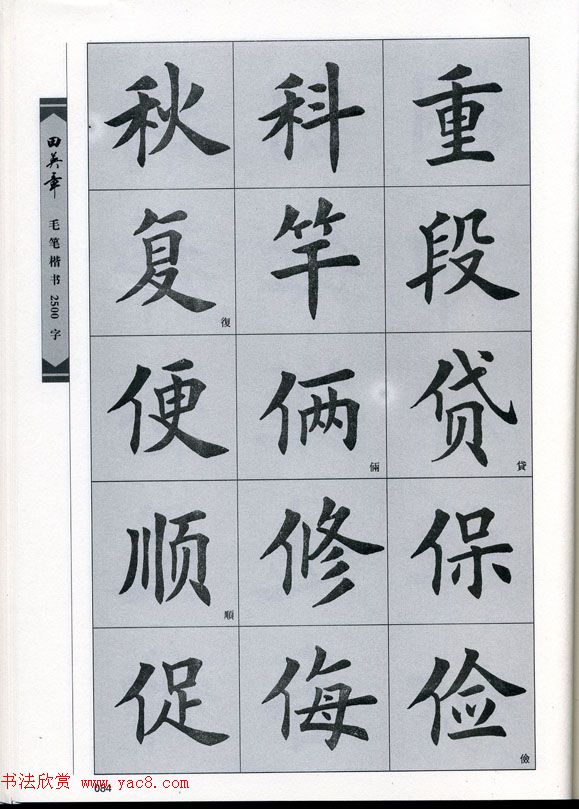 田英章
毛笔楷书2500字
秋 科 重
复 復 竿 段
便 俩 倆 贷 貸
顺 順 修 保
促 侮 俭 儉
084
书法欣赏 www.yac8.com